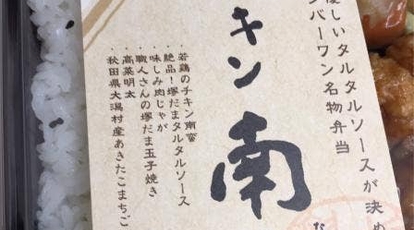 優しいタルタルソースが決め
ンバーワン名物弁当
キン南
・若鶏のチキン南蛮
・絶品!塚だまタルタルソース
・味しみ肉じゃが
・職人さんの塚だま玉子焼き
・高菜明太
・秋田県大潟村産あきたこまちご